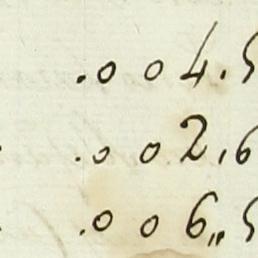 .0 0 4.5
.0 0 2,6
.0 0 6,,5